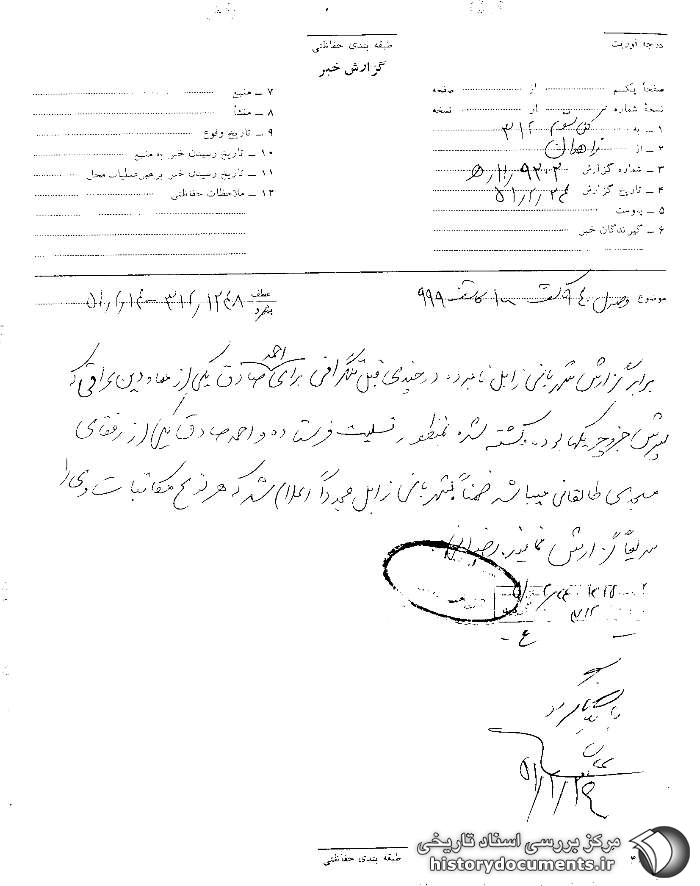 درجه فوریت
طبقه بندی حفاظتی
گزارش خبر
صفحهٔ یکم از صفحه
نسخهٔ شماره از نسخه
۱ ـ به کل سوم ۳۱۲
۲ ـ از زاهدان
۳ ـ شماره گزارش ۹۳۰۲/ه۱۱
۴ ـ تاریخ گزارش ۵۱/۲/۲۴
۵ ـ پیوست
۶ ـ گیرندگان خبر
۷ ـ منبع
۸ ـ منشأ
۹ ـ تاریخ وقوع
۱۰ ـ تاریخ رسیدن خبر به منبع
۱۱ ـ تاریخ رسیدن خبر برهبر عملیات محل
۱۲ ـ ملاحظات حفاظتی
موضوع ۹۹۹
عطف ۳۱۲/۱۲۴۸
برابر گزارش شهربانی زابل نامبرده در چندی قبل تلگرافی برای احمد صادق یکی از معاودین عراقی که
پسرش جزو چریکها بوده و کشته شده بمنظور تسلیت فرستاده و احمد صادق یکی از رفقای
صمیمی طالقانی میباشد ضمناً بشهربانی زابل مجدداً اعلام شد که هر نوع مکاتبات وی را
سریعاً گزارش نمایند.
۳۱۲
بایگانی شود
۵۱/۲/۲۹
طبقه بندی حفاظتی
مرکز بررسی اسناد تاریخی
historydocuments.ir